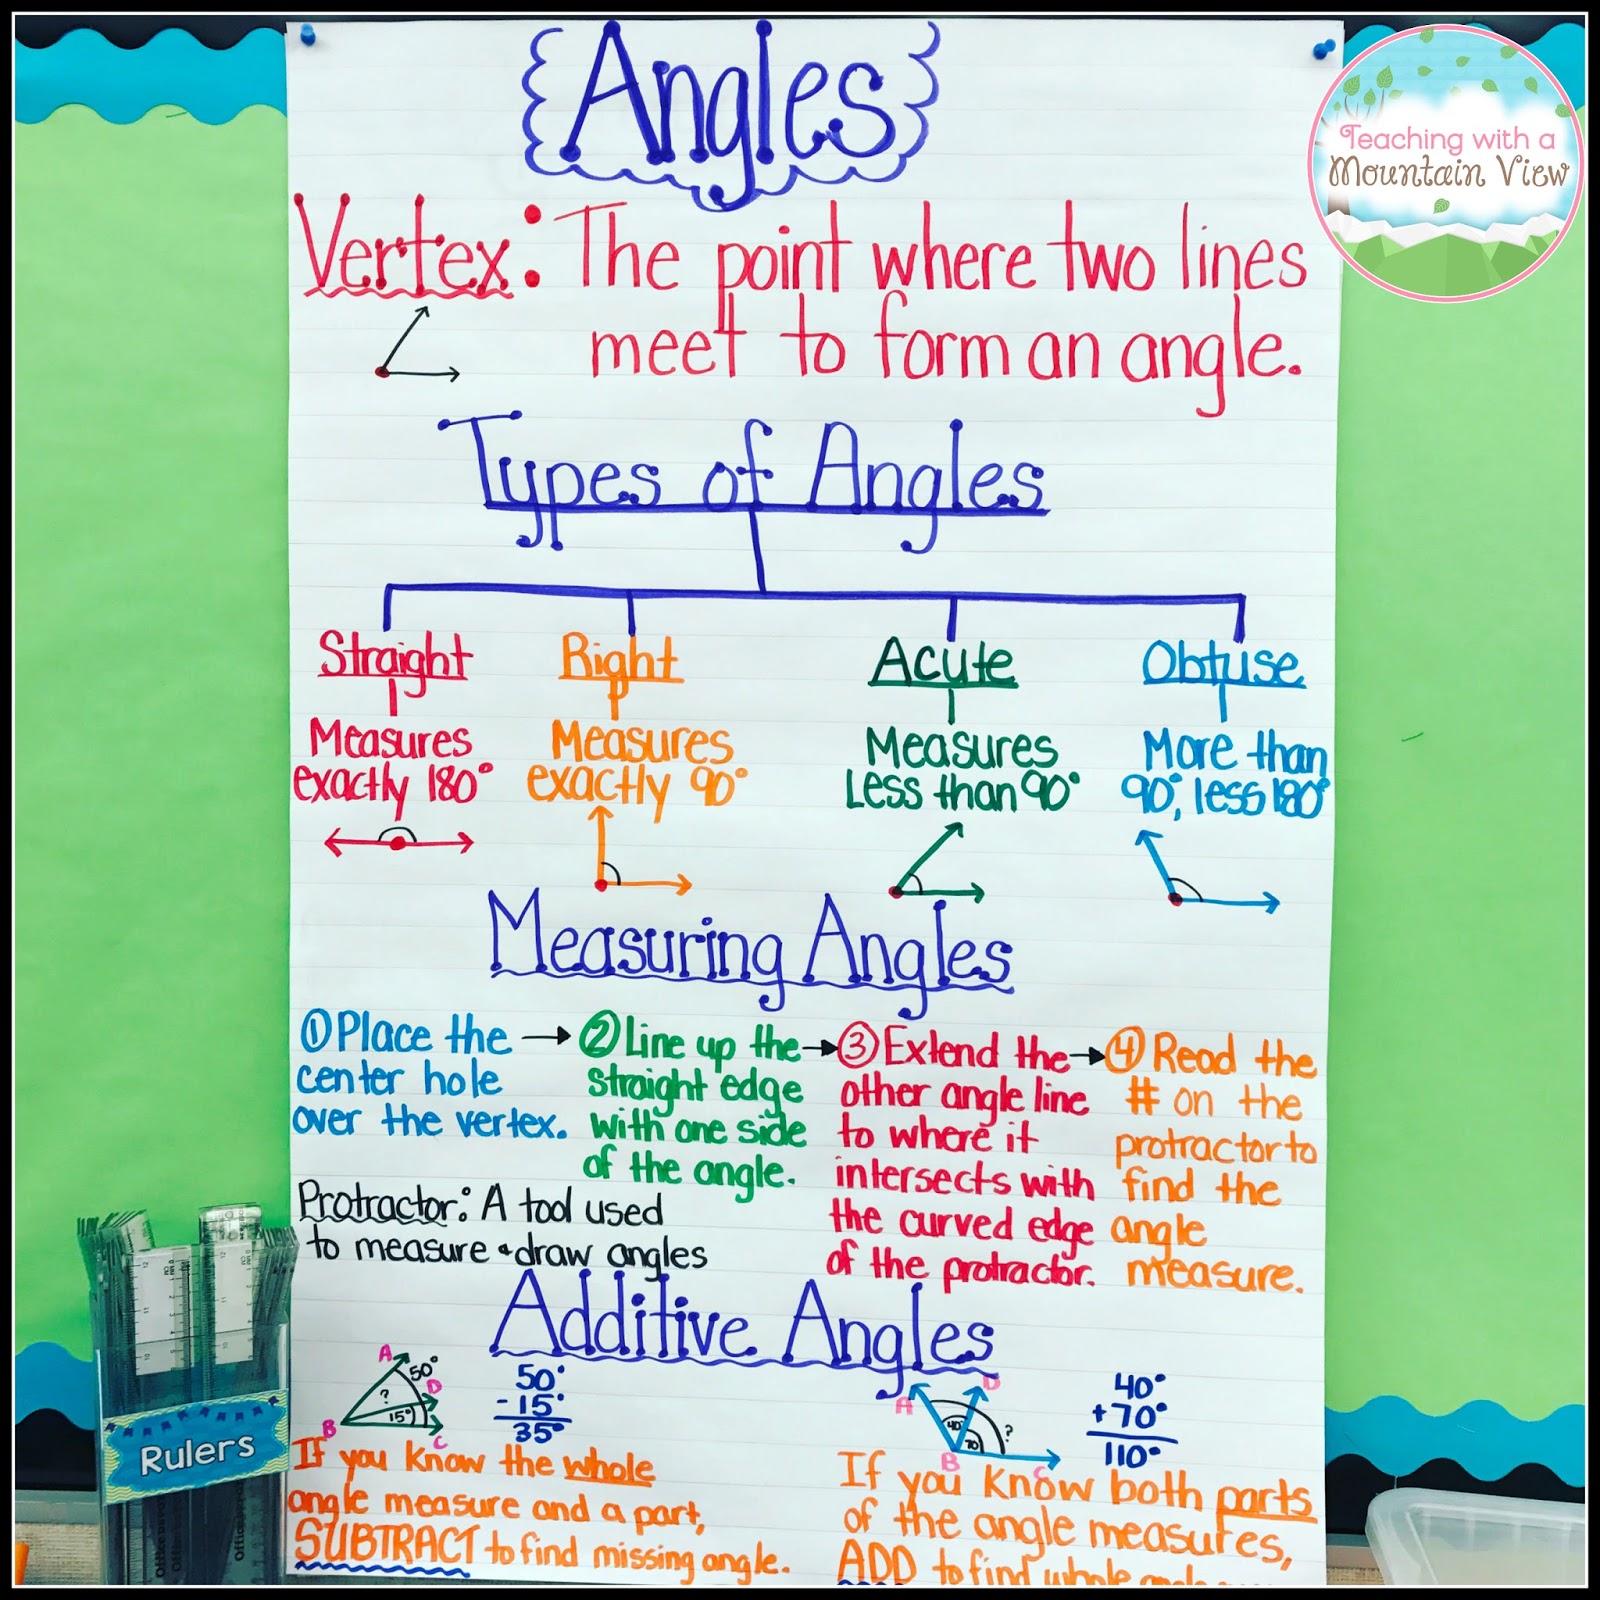 Angles
Teaching with a
Mountain View
Vertex: The point where two lines
meet to form an angle.
Types of Angles
Straight
Measures
exactly 180°
Right
Measures
exactly 90°
Acute
Measures
Less than 90°
Obtuse
More than
90°, less 180°
Measuring Angles
① Place the
center hole
over the vertex.
② Line up the
straight edge
with one side
of the angle.
③ Extend the
other angle line
to where it
intersects with
the curved edge
of the protractor.
④ Read the
# on the
protractor to
find the
angle
measure.
Protractor: A tool used
to measure + draw angles
Additive Angles
A
50°
D
?
15°
B
C
50°
- 15°
35°
If you know the whole
angle measure and a part,
SUBTRACT to find missing angle.
A
D
40°
70°
?
B
C
40°
+ 70°
110°
If you know both parts
of the angle measures,
ADD to find whole
Rulers